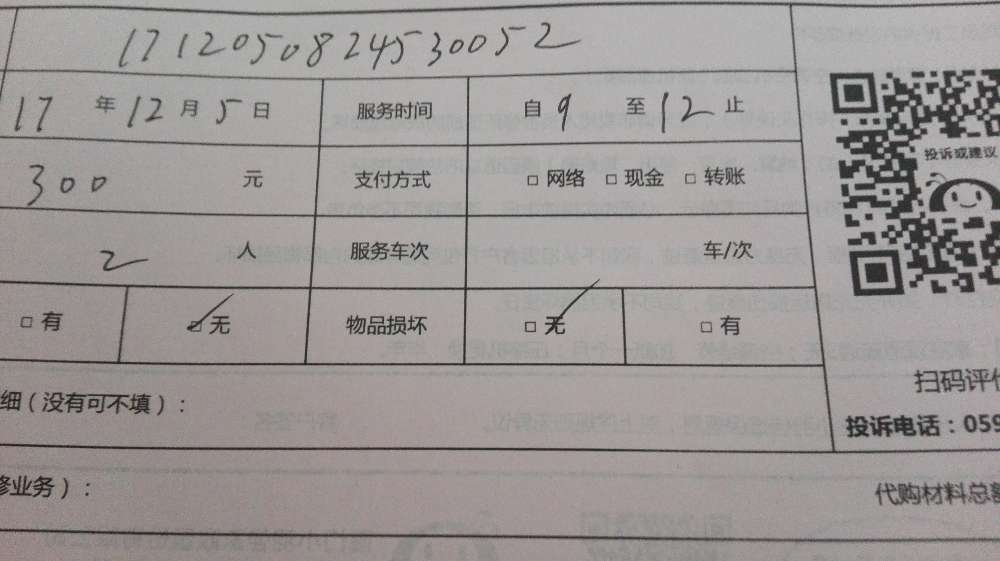 1712050824530052
17 年 12 月 5 日 服务时间 自 9 至 12 止
300 元 支付方式 □ 网络 □ 现金 □ 转账
2 服务车次 车/次
□ 有 ☑ 无 物品损坏 □ 无 □ 有
投诉或建议
扫码评
细（没有可不填）：
投诉电话：059
修业务）：
代购材料总额